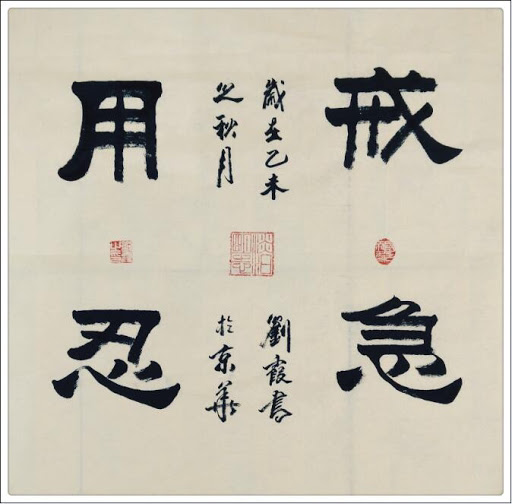 戒急
用忍
歲在乙未
之秋月
劉霞書
於京華